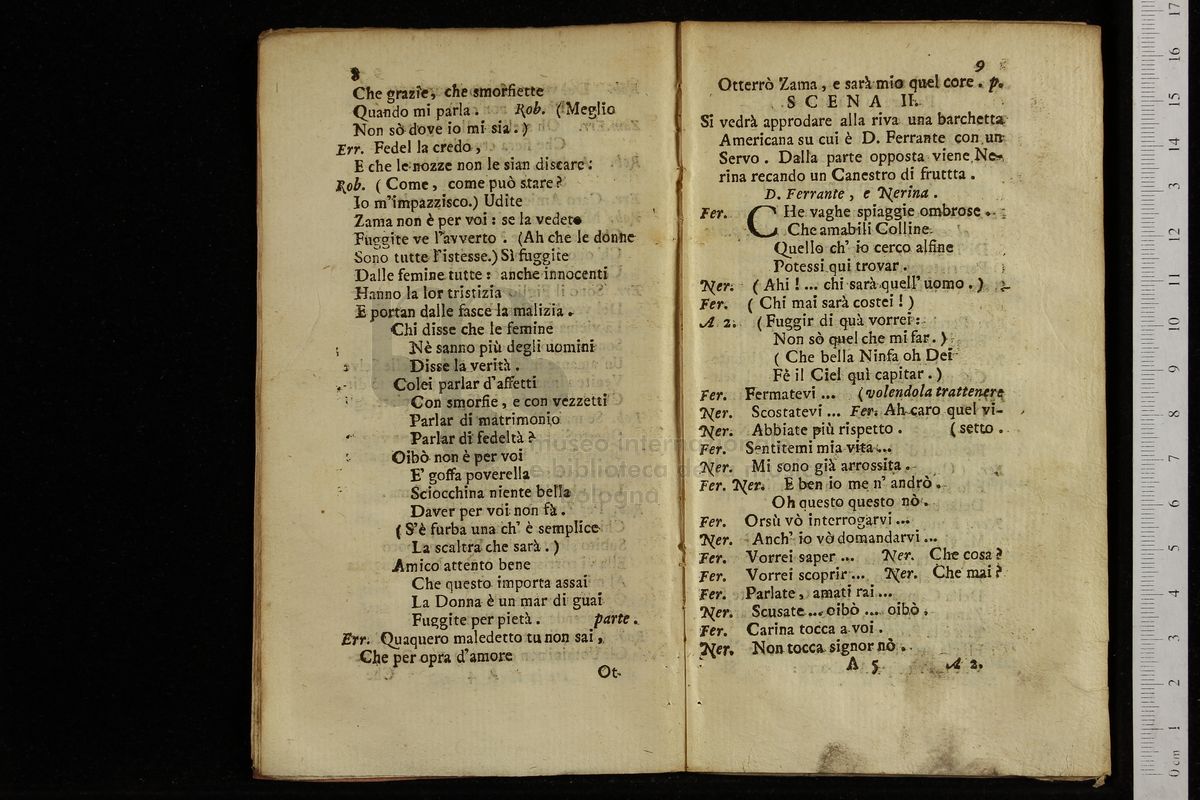 8
Che grazie, che smorfiette
Quando mi parla. Rob. (Meglio
Non sò dove io mi sia.)
Err. Fedel la credo,
E che le nozze non le sian discare:
Rob. (Come, come può stare?
Io m'impazzisco.) Udite
Zama non è per voi: se la vedete
Fuggite ve l'avverto. (Ah che le donne
Sono tutte l'istesse.) Sì fuggite
Dalle femine tutte: anche innocenti
Hanno la lor tristizia
E portan dalle fasce la malizia.
Chi disse che le femine
Nè sanno più degli uomini
Disse la verità.
Colei parlar d'affetti
Con smorfie, e con vezzetti
Parlar di matrimonio
Parlar di fedeltà?
Oibò non è per voi
E' goffa poverella
Sciocchina niente bella
Daver per voi non fà.
(S'è furba una ch' è semplice
La scaltra che sarà.)
Amico attento bene
Che questo importa assai
La Donna è un mar di guai
Fuggite per pietà. parte.
Err. Quaquero maledetto tu non sai,
Che per opra d'amore
Ot-
9
Otterrò Zama, e sarà mio quel core. p.
SCENA II.
Si vedrà approdare alla riva una barchetta
Americana su cui è D. Ferrante con un
Servo. Dalla parte opposta viene Ne-
rina recando un Canestro di fruttta.
D. Ferrante, e Nerina.
Fer. CHe vaghe spiaggie ombrose.
Che amabili Colline.
Quello ch' io cerco alfine
Potessi qui trovar.
Ner. (Ahi!... chi sarà quell' uomo.)
Fer. (Chi mai sarà costei!)
A 2. (Fuggir di quà vorrei:
Non sò quel che mi far.)
(Che bella Ninfa oh Dei
Fè il Ciel quì capitar.)
Fer. Fermatevi... (volendola trattenere
Ner. Scostatevi... Fer. Ah caro quel vi-
Ner. Abbiate più rispetto. (setto.
Fer. Sentitemi mia vita...
Ner. Mi sono già arrossita.
Fer. Ner. E ben io me n' andrò.
Oh questo questo nò.
Fer. Orsù vò interrogarvi...
Ner. Anch' io vò domandarvi...
Fer. Vorrei saper... Ner. Che cosa?
Fer. Vorrei scoprir... Ner. Che mai?
Fer. Parlate, amati rai...
Ner. Scusate... oibò... oibò,
Fer. Carina tocca a voi.
Ner. Non tocca signor nò.
A 5 A 2.
museo internazionale
e biblioteca della musica
di bologna
17
16
15
14
13
12
11
10
9
8
7
6
5
4
3
2
1
0 cm